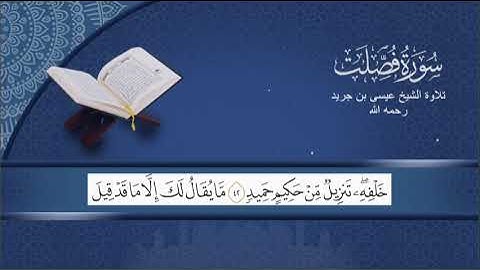 سُورَةُ فُصِّلَت
تلاوة الشيخ عيسى بن جريد
رحمه الله
خَلْفِهِۦۖ تَنزِيلٌ مِّنْ حَكِيمٍ حَمِيدٍ ٤٢ مَّا يُقَالُ لَكَ إِلَّا مَا قَدْ قِيلَ